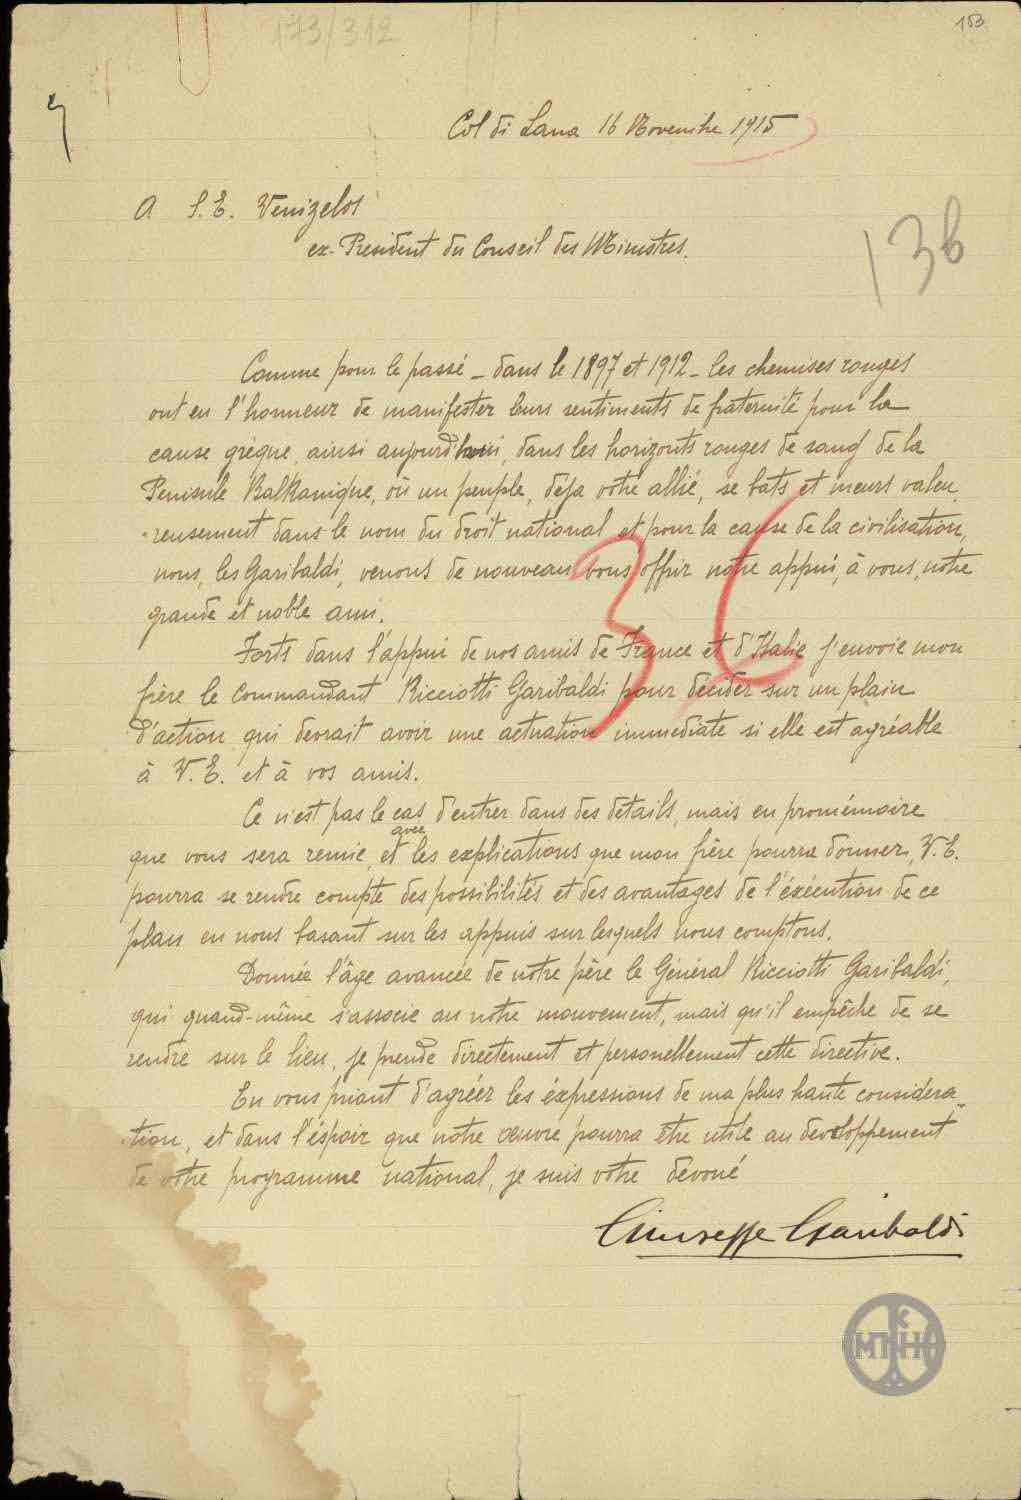 173/312
153
Col di Lana 16 Novembre 1915
A S.E. Venizelos
ex-President du Conseil des Ministres.
136
Comme pour le passé – dans le 1897 et 1912 – les chemises rouges
ont eu l'honneur de manifester leurs sentiments de fraternité pour la
cause grèque, ainsi aujourd'hui, dans les horizonts rouges de sang de la
Penisule Balkanique, où un peuple, deja votre allié, se bats et meurs valeu-
-reusement dans le nom du droit national et pour la cause de la civilisation,
nous, les Garibaldi, venons de nouveau vous offrir notre appui, à vous, notre
grande et noble ami.
Forts dans l'appui de nos amis de France et d'Italie j'envoie mon
frère le Commandant Ricciotti Garibaldi pour decider sur un plain
d'action qui devrait avoir une actuation immediate si elle est agréable
à V.E. et à vos amis.
Ce n'est pas le cas d'entrer dans des details, mais en promémoire
que vous sera remie, et avec les explications que mon frère pourra donner, V.E.
pourra se rendre compte des possibilités et des avantages de l'éxécution de ce
plan en nous basant sur les appuis sur lesquels nous comptons.
Donnée l'âge avancée de notre père le Général Ricciotti Garibaldi,
qui quand-même s'associe au notre mouvement, mais qu'il empêche de se
rendre sur le lieu, je prende directement et personellement cette directive.
En vous priant d'agréer les éxpressions de ma plus haute considera-
-tion, et dans l'éspoir que notre œuvre pourra être utile au developpement
de votre programme national, je suis votre devoué
Giuseppe Garibaldi
36
ΜΠΚΗ